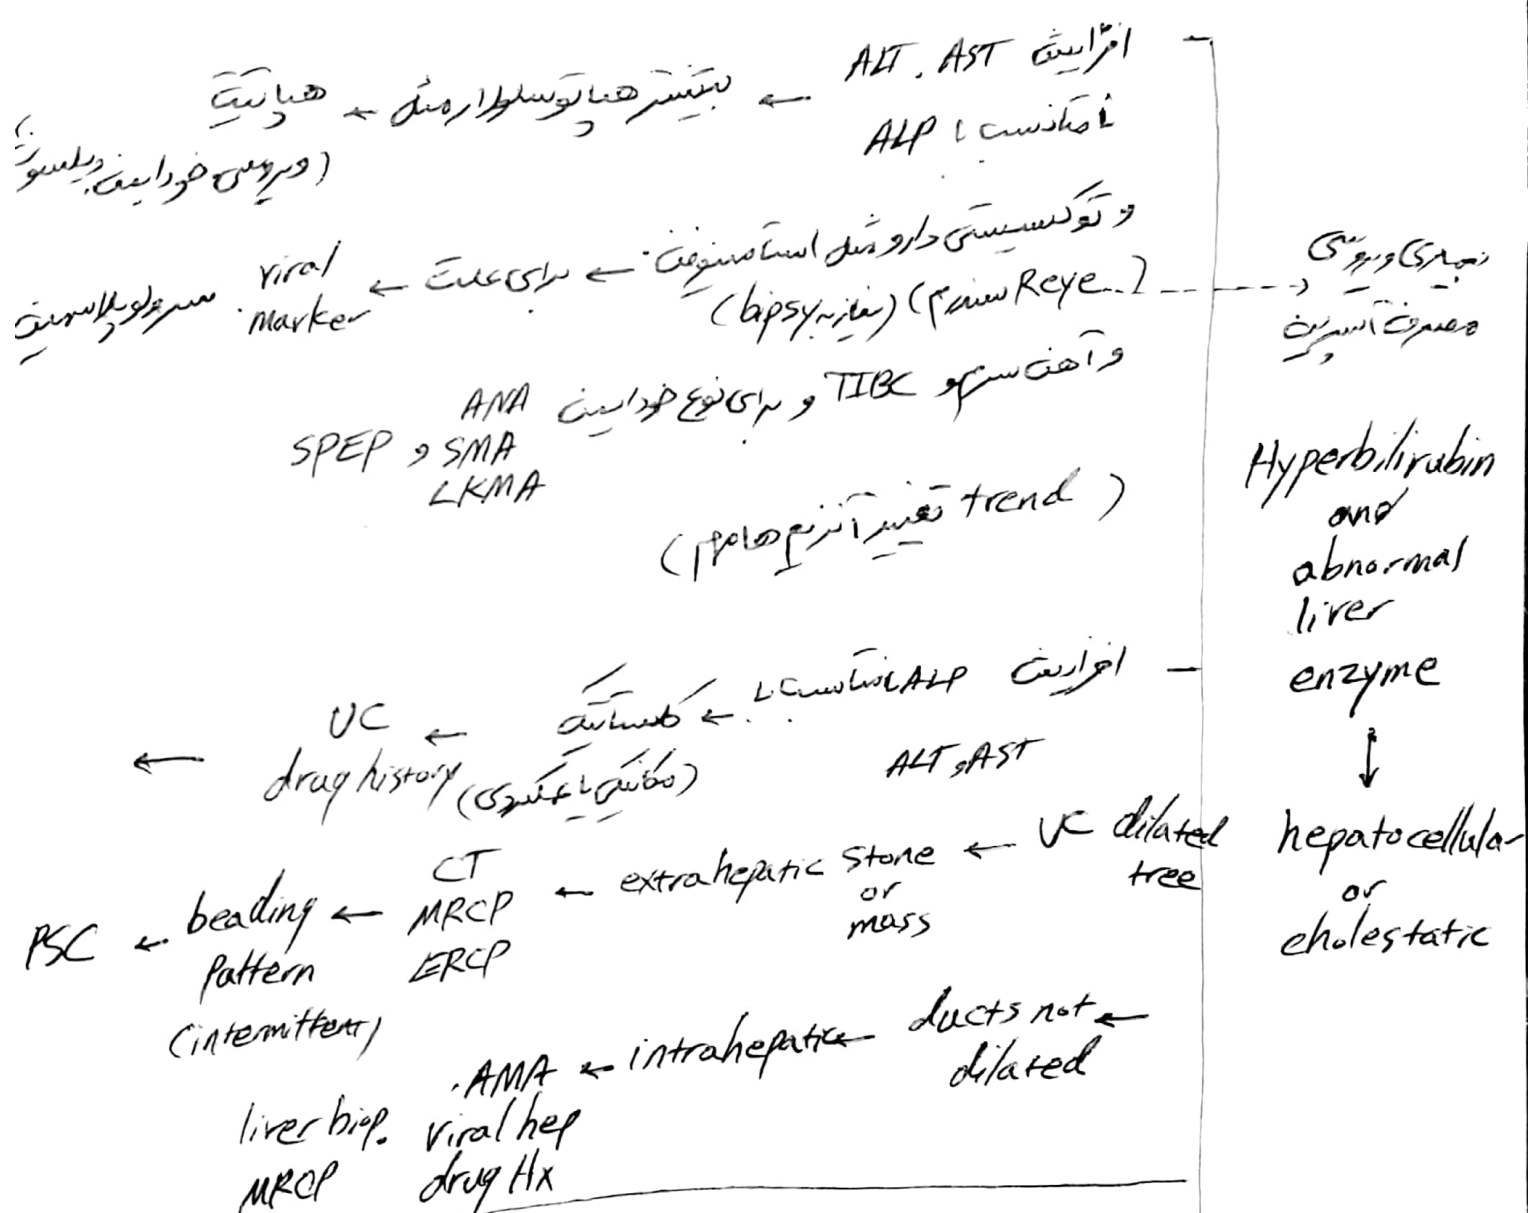 افزایش ALT, AST ← بیشتر هپاتوسلولار مثل ← هپاتیت
نامتناسب با ALP
(ویروسی، خودایمن، ویلسون)
و توکسیسیتی دارو مثل استامینوفن ← برای علت ← viral marker سرولوپلاسمین
(سندرم Reye) (نیاز به bipsy)
بیماری ویروسی
مصرف آسپرین
و آهن سرم و TIBC و برای نوع خودایمن ANA
SMA و SPEP
LKMA
(trend تغییر آنزیم ها مهم)
Hyperbilirubin
and
abnormal
liver
enzyme
↓
hepatocellular
or
cholestatic
افزایش ALP نامتناسب با ← کلستاتیک ← UC ←
ALT و AST
(مکانیکی یا عملکردی)
drug history
UC dilated
tree
← stone
or
mass
extrahepatic ← CT
MRCP
ERCP
← beading
pattern
(intermittent)
← PSC
← ducts not
dilated
← intrahepatic ← AMA
viral hep
drug Hx
liver biop.
MRCP